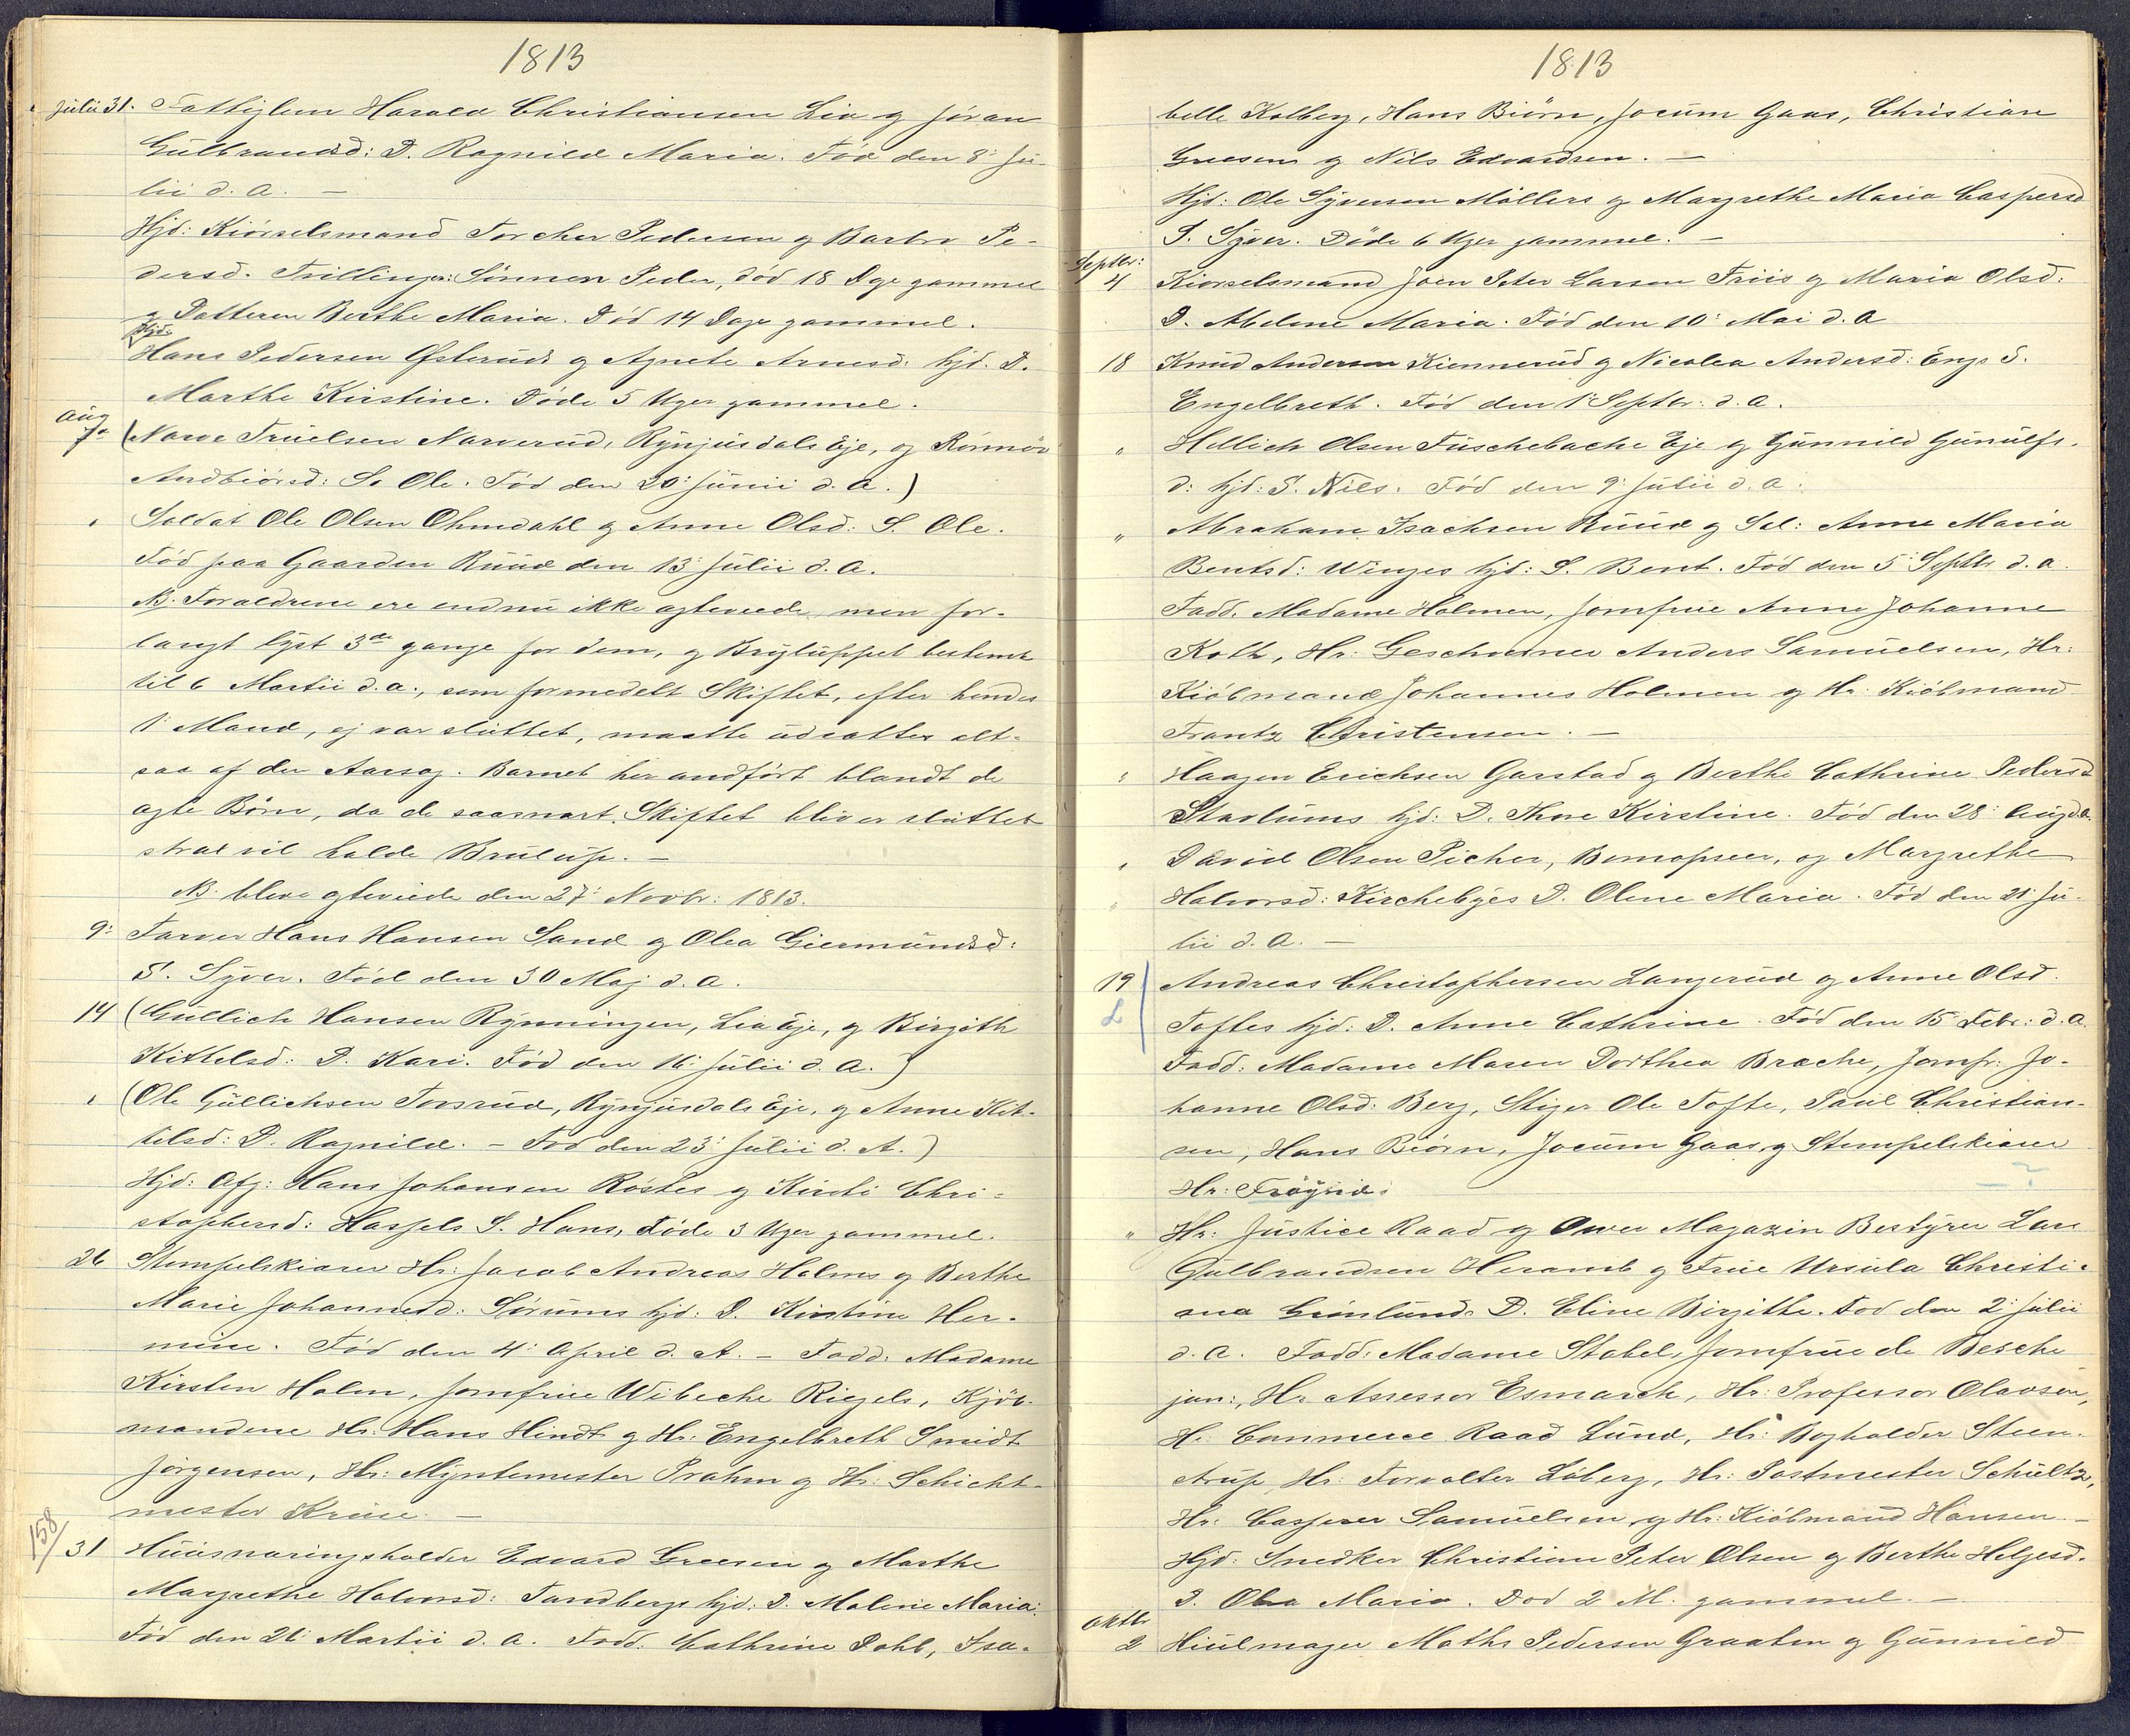 1813
Julii 31. Fattiglem Harald Christiansen Lia og Jöran
Gulbrandsd: D. Ragnild Maria. Fød den 8: Ju-
lii d. a. —
Hjd: Kiörselsmand Torcher Pedersen og Barbro Pe-
dersd. Trillinger: Sönnen Peder, död 18 Dage gammel
og Datteren Berthe Maria. Död 14 Dage gammel.
Hjd:
Hans Pedersen Østeruds og Agnete Arnesd. hjd. D.
Marthe Kirstine. Døde 5 Uger gammel.
Aug
7de (Narve Truelsen Narverud, Rynjusdals Eje, og Rönnöv
Andbiörsd: S. Ole. Fød den 20: Junii d. a.)
" Soldat Ole Olsen Ohmdahl og Anne Olsd: S. Ole.
Fød paa Gaarden Ruud den 13: Julii d. a.
NB. Forældrene ere endnu ikke agteviede, men for-
langt lyst 3de gange for dem, og Bryluppet bestemt
til 6 Martii d. a., som formedelst Skiftet, efter hendes
1: Mand, ej var sluttet, maatte udsættes alt-
saa af den Aarsag. Barnet her andført blandt de
agte Börn, da de saasnart Skiftet bliver sluttet
strax vil holde Brulup. —
NB. bleve agteviede den 27: Novbr: 1813.
9: Farver Hans Hansen Sand og Olea Giermundsd:
S. Syver. Född den 30 Maj d. a.
14 (Gullich Hansen Rynningen, Lia Eje, og Birgith
Kittelsd: D. Kari. Fød den 16: Julii d. A.)
" (Ole Gullichsen Torsrud, Rynjusdals Eje, og Anne Kit-
telsd: D. Ragnild. - Fød den 23: Julii d. A.)
Hjd: Afg: Hans Johansen Röstes og Kirsti Chri-
stophersd: Haspels S. Hans, døde 3 Uger gammel.
26 Stempelskiærer Hr: Jacob Andreas Holms og Berthe
Marie Johannesd: Sörums hjd: D. Kirstine Her-
mine. Fød den 4: April d. A. - Fadd: Madame
Kirsten Holm, Jomfrue Wibeche Riegels, Kjöb-
mandene Hr. Hans Hindt og Hr: Engelbreth Smidt
Jörgensen, Hr: Myntemester Prahm og Hr: Schicht-
mester Kruse. —
158/
31 Huusnaringsholder Edvard Greesen og Marthe
Margrethe Halvorsd: Sandbergs hjd: D. Malene Maria.
Fød den 21: Martii d. a. Fadd. Cathrine Dahl, Isa-
1813
belle Kolberg, Hans Biörn, Jocum Gaas, Christian
Greesen og Nils Edvardsen. —
Hjd: Ole Syvensen Möllers og Margrethe Maria Caspersd
S. Syver. Døde 6 Uger gammel. —
Septbr:
4 Kiorselsmand Joen Peter Larsen Friis og Maria Olsd:
D. Abelone Maria. Fød den 10: Mai d. a
18 Knud Andersen Kiennerud og Nicolea Andersd: Engs S.
Engelbreth. Fød den 1: Septbr: d. a.
" Hellich Olsen Fuschebache Eje og Gunnild Gunulfs-
d: hjd: S. Niels. Fød den 9: Julii d. a.
" Abraham Isachsen Ruud og Sal: Anne Maria
Bentsd: Winges hjd: S. Bent. Fød den 5: Septbr d. a.
Fadd. Madame Holmen, Jomfrue Anne Johanne
Koth, Hr: Geschworner Anders Samuelsen, Hr:
Kiöbmand Johannes Holmen og Hr: Kiöbmand
Frantz Christensen. —
" Haagen Erichsen Garstad og Berthe Cathrine Pedersd
Stavlums hjd: D. Thore Kirstine. Fød den 28: Aug d. a.
" David Olsen Picher, og Margrethe
" Halvorsd: Kirchebyes D. Olene Maria. Fød den 21: Ju-
lii d. a. —
19 Andreas Christophersen Langerud og Anne Olsd.
L Toftes hjd: D. Anne Cathrine. Fød den 15 Febr: d. a.
Fadd: Madame Maren Dorthea Brache, Jomfr: Jo-
hanne Olsd: Berg, Stiger Ole Tofte, Paul Christian-
sen, Hans Biörn, Jocum Gaas, og Stempelskiærer
Hr: Tröyrid: — ?
" Hr: Justice Raad og Over Magazin Bestyrer Lars
Gulbrandsen Heramb og Frue Ursula Christi-
ana Grönlunds D. Eline Birgithe. Fød den 2: Julii
d. a. Fadd: Madame Stabel, Jomfrue de Besche
jun:, Hr. Assessor Esmarch, Hr: Professor Olavsen,
Hr: Commerce Raad Lund, Hr: Bogholder Steen-
strup, Hr: Forvalter Löberg, Hr: Postmester Schultz,
Hr: Casserer Samuelsen og Hr: Kiöbmand Hansen —
Hjd: Snedker Christian Peter Olsen og Berthe Helgesd.
D. Olea Maria. Død 2 M: gammel. —
Oktbr
2 Hiulmager Mathis Pedersen Graaten og Gunnild